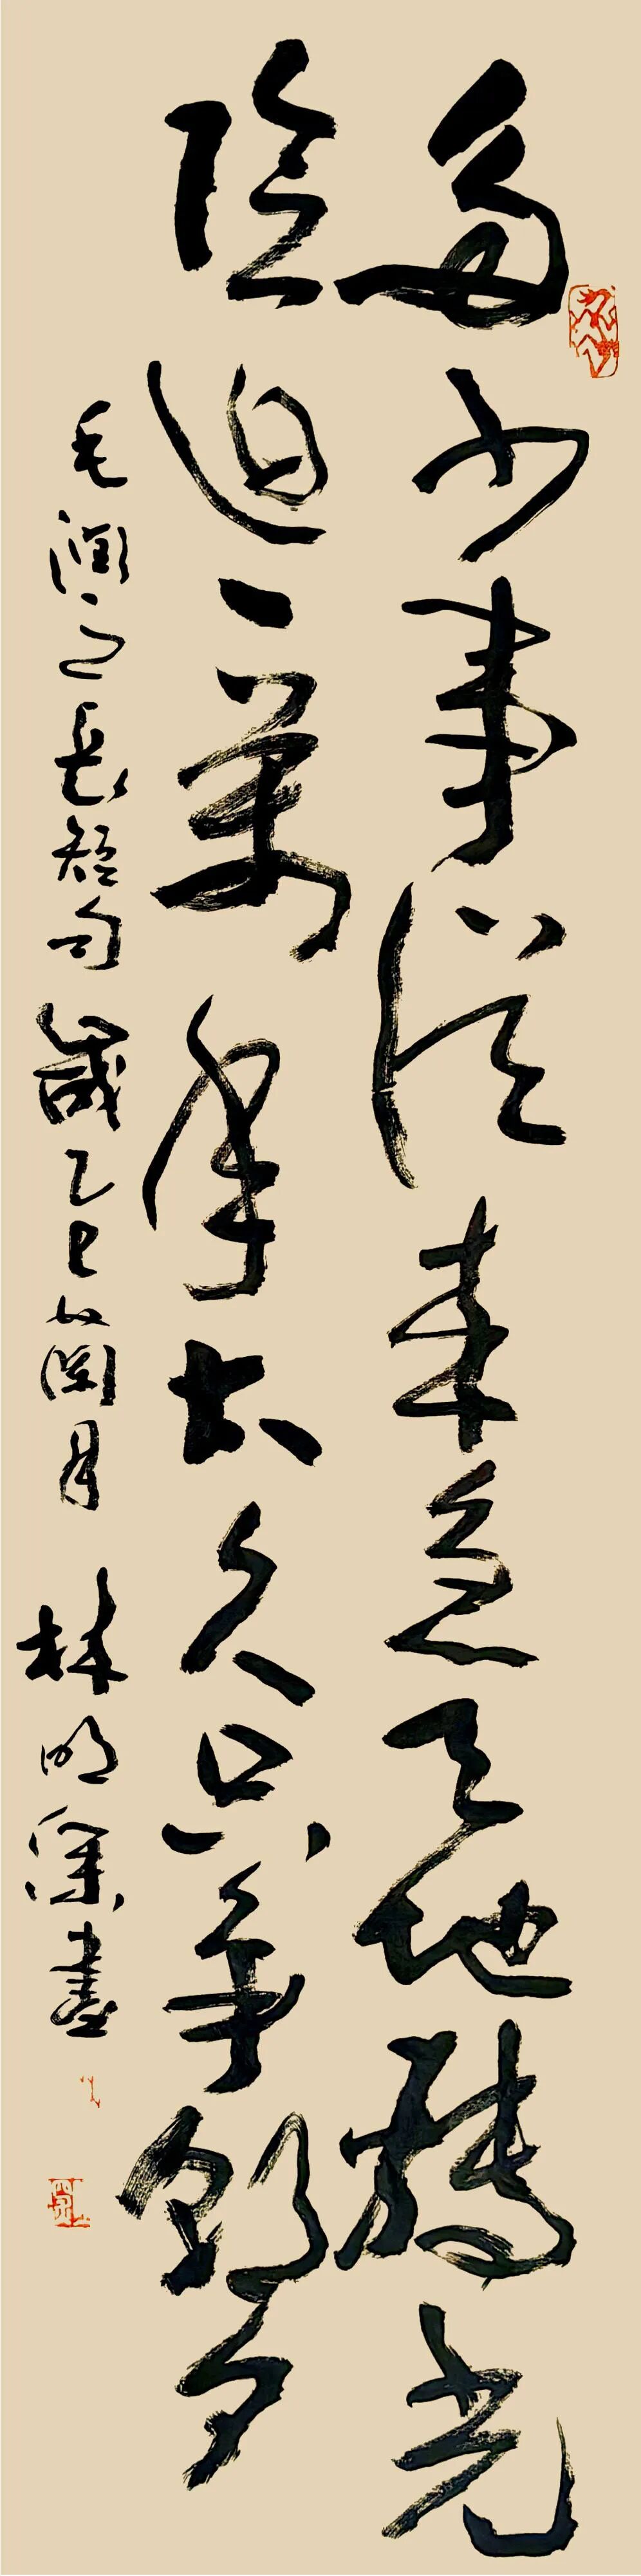 多少事從來急天地轉光
陰迫一萬年太久只爭朝夕
毛潤之長短句 歲乙巳蘭月 林明深書